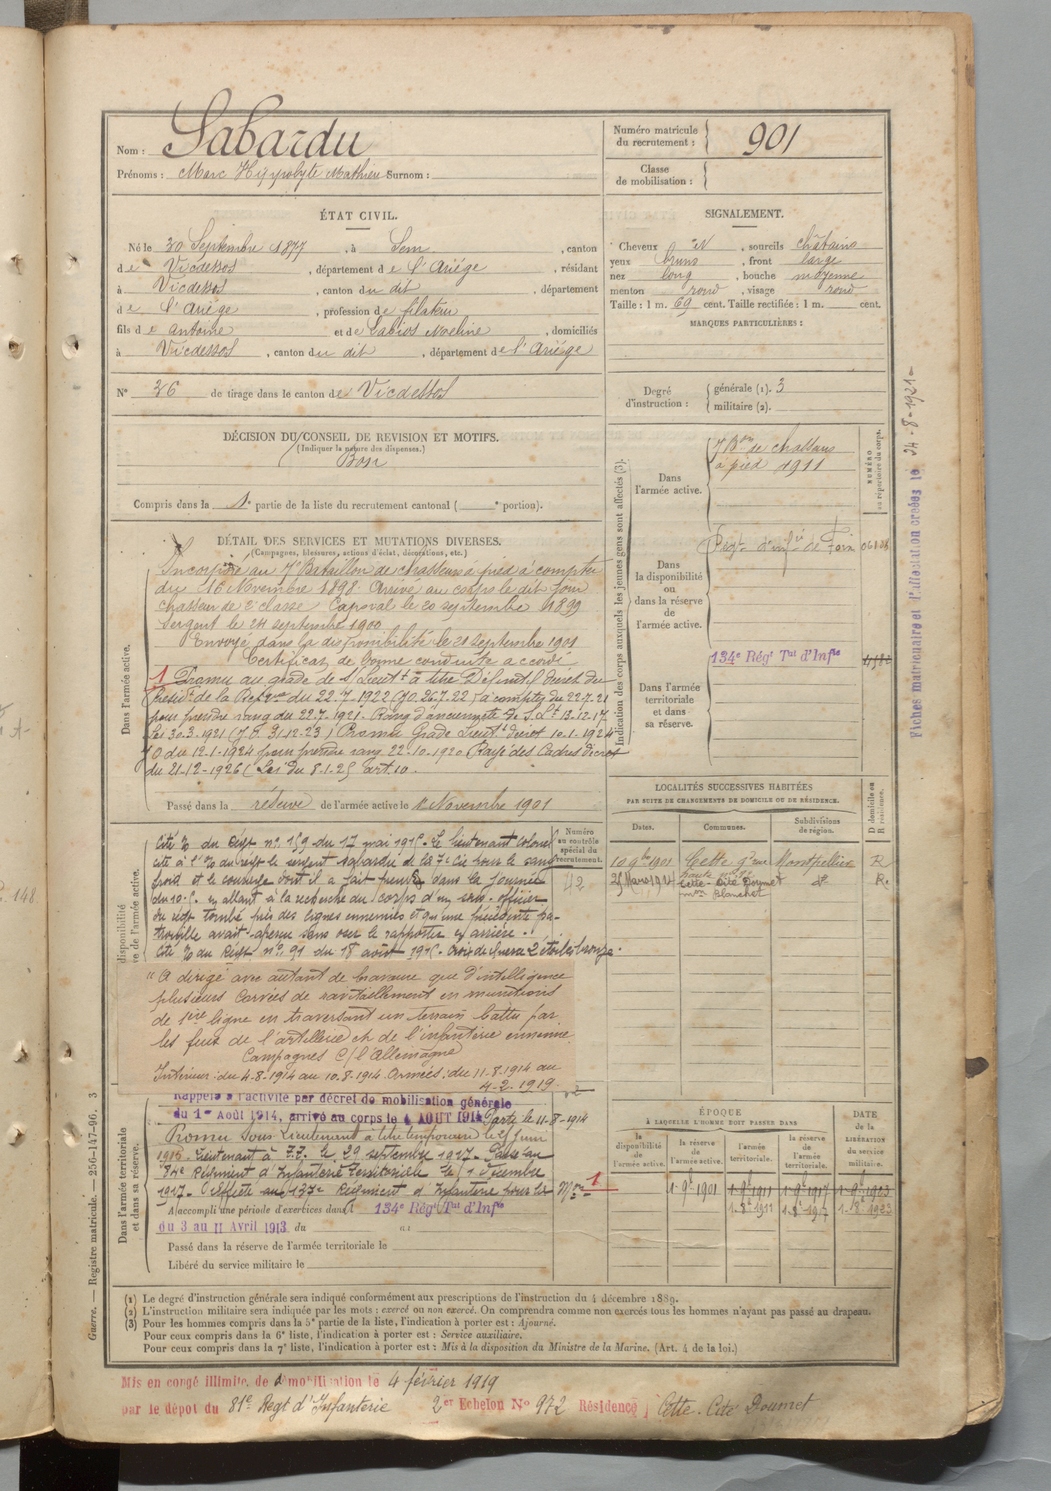 Nom : Sabardu
Prénoms : Marc Hippolyte Mathieu Surnom :
Numéro matricule du recrutement : 901
Classe de mobilisation :
ÉTAT CIVIL.
Né le 30 Septembre 1877, à Sem, canton
de Vicdessos, département de l'Ariège, résidant
à Vicdessos, canton du dit, département
de l'Ariège, profession de filateur
fils de Antoine et de Cabios Noeline, domiciliés
à Vicdessos, canton du dit, département de l'Ariège
N° 36 de tirage dans le canton de Vicdessos
SIGNALEMENT.
Cheveux et, sourcils châtains
yeux bruns, front large
nez long, bouche moyenne
menton rond, visage rond
Taille : 1 m. 69 cent. Taille rectifiée : 1 m. cent.
MARQUES PARTICULIÈRES :
Degré d'instruction : générale (1). 3
militaire (2).
DÉCISION DU CONSEIL DE REVISION ET MOTIFS.
(Indiquer la nature des dispenses.)
Bon
Compris dans la 1e partie de la liste du recrutement cantonal ( e portion).
DÉTAIL DES SERVICES ET MUTATIONS DIVERSES.
(Campagnes, blessures, actions d'éclat, décorations, etc.)
Dans l'armée active.
Incorporé au 7e Bataillon de chasseurs à pied à compter
du 16 Novembre 1898. Arrivé au corps le dit jour
chasseur de 2e classe. Caporal le 20 septembre 1899
Sergent le 24 septembre 1900
Envoyé dans la disponibilité le 21 septembre 1901
Certificat de bonne conduite accordé.
1 Promu au grade de S. Lieut. à titre Définitif décret du
Présidt de la Répque du 22.7.1922 (JO. 26.7.22) à compter du 22.7.21
pour prendre rang du 22.7.1921. Rang d'ancienneté de S. Lt 13.12.17
Promu Grade Lieut. décret 10.1.1924
JO du 12.1.1924 pour prendre rang 22.10.1920 Rayé des Cadres décret
du 21-12-1926 (Loi du 8.1.25 Art. 10.
Passé dans la réserve de l'armée active le 1 Novembre 1901
Indication des corps auxquels les jeunes gens sont affectés (3).
NUMÉRO au répertoire du corps.
Dans l'armée active.
7 Bon de chasseurs
à pied 1911
Dans la disponibilité ou dans la réserve de l'armée active.
Régt d'infie de Foix
Dans l'armée territoriale et dans sa réserve.
134e Régt Tal d'Infie
Fiches matriculaire et d'affectation créées le 24-8-1921
LOCALITÉS SUCCESSIVES HABITÉES
PAR SUITE DE CHANGEMENTS DE DOMICILE OU DE RÉSIDENCE.
Dates. Communes. Subdivisions de région. D domicile ou R résidence.
10 9bre 1901 Cette Montpellier R
25 Mars 1921 Cette - Cité Doumet d° R.
mon Blanchet
Numéro au contrôle spécial du recrutement.
42
disponibilité
de l'armée active.
Cité % du Régt n° 159 du 17 mai 1915. Le lieutenant colonel
cite à l'% du régt le sergent Sabardu de la 7e Cie pour le sang
froid et le courage dont il a fait preuve dans la journée
du 10.5. en allant à la recherche du corps d'un sous-officier
du régt tombé près des lignes ennemies et qu'une précédente pa-
trouille avait aperçu sans oser le rapporter en arrière.
Cité % du Régt n° 91 du 18 août 1915. Croix de Guerre 2 étoiles bronze.
" A dirigé avec autant de bravoure que d'intelligence
plusieurs Corvées de ravitaillement en munitions
de 1ère ligne en traversant un terrain battu par
les feux de l'artillerie et de l'infanterie ennemie.
Campagnes C/ l'Allemagne
Intérieur : du 4-8-1914 au 10.8.1914. Armées : du 11.8.1914 au
4-2-1919
Rappelé à l'activité par décret de mobilisation générale
du 1er Août 1914, arrivé au corps le 4 AOUT 1914 Parti le 11-8-1914
Dans l'armée territoriale et dans sa réserve.
Promu Sous-Lieutenant à titre temporaire le 21 juin
1916. Lieutenant à T.T. le 29 septembre 1917. Passé au
34e Régiment d'Infanterie Territoriale le 1 Décembre
1917. Affecté au 137e Régiment d'Infanterie
A accompli une période d'exercices dans 134e Régt Tal d'Infie
du 3 au 11 Avril 1913 du au
Passé dans la réserve de l'armée territoriale le
Libéré du service militaire le
ÉPOQUE
À LAQUELLE L'HOMME DOIT PASSER DANS
la disponibilité de l'armée active. la réserve de l'armée active. l'armée territoriale. la réserve de l'armée territoriale.
DATE de la LIBÉRATION du service militaire.
1-9bre 1901 1-9bre 1911 1-9bre 1917 1-9bre 1923
1-8bre 1911 1-8bre 1917 1-8bre 1923
(1) Le degré d'instruction générale sera indiqué conformément aux prescriptions de l'instruction du 4 décembre 1889.
(2) L'instruction militaire sera indiquée par les mots : exercé ou non exercé. On comprendra comme non exercés tous les hommes n'ayant pas passé au drapeau.
(3) Pour les hommes compris dans la 5e partie de la liste, l'indication à porter est : Ajourné.
Pour ceux compris dans la 6e liste, l'indication à porter est : Service auxiliaire.
Pour ceux compris dans la 7e liste, l'indication à porter est : Mis à la disposition du Ministre de la Marine. (Art. 4 de la loi.)
Guerre. — Registre matricule. — 256-147-96. 3
Mis en congé illimité de démobilisation le 4 février 1919
par le dépôt du 81e Régt d'Infanterie 2er Echelon N° 972 Résidence Cette. Cité Doumet